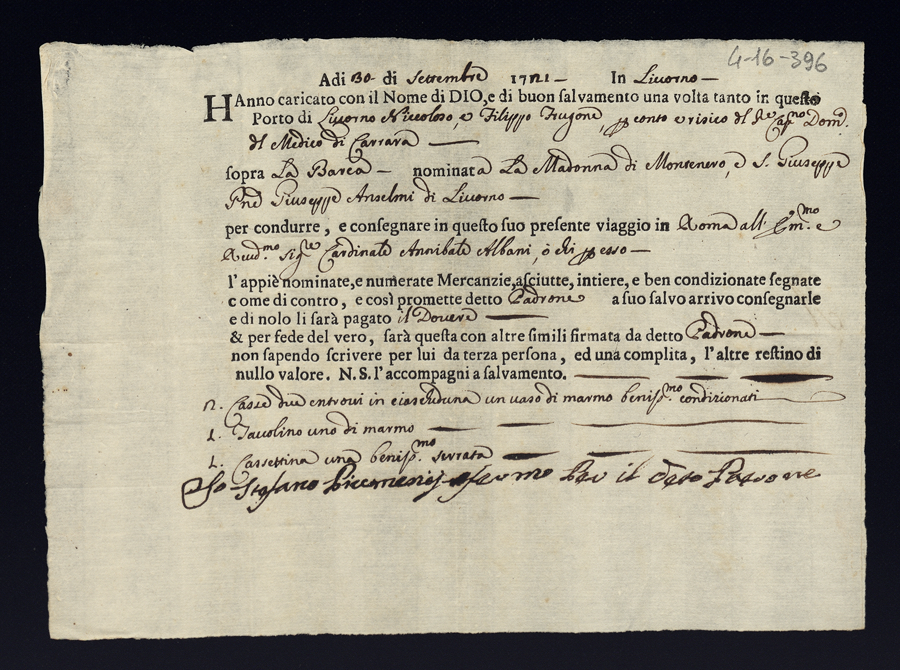 4-16-396
Adi 30 di Settembre 1721 — In Livorno —
HAnno caricato con il Nome di DIO, e di buon salvamento una volta tanto in questo
Porto di Livorno Niccoloso, e Filippo Frugone, p conto e risico del Capno Domo.
del Medico di Carrara —
sopra La Barca — nominata La Madonna di Montenero, e S. Giuseppe
Pne Giuseppe Anselmi di Livorno —
per condurre, e consegnare in questo suo presente viaggio in Roma all' Emmo. e
Revdmo. Sigre Cardinale Annibale Albani, ò chi p esso —
l'appiè nominate, e numerate Mercanzie, asciutte, intiere, e ben condizionate segnate
come di contro, e così promette detto Padrone a suo salvo arrivo consegnarle
e di nolo li sarà pagato il Dovere —
& per fede del vero, sarà questa con altre simili firmata da detto Padrone —
non sapendo scrivere per lui da terza persona, ed una complita, l'altre restino di
nullo valore. N. S. l'accompagni a salvamento.
2. Casse due entrovi in ciascheduna un vaso di marmo benispmo. condizionati
1. Tavolino uno di marmo
1. Cassettina una benispmo. serrata
Io Stefano afermo Per il deto Padrone